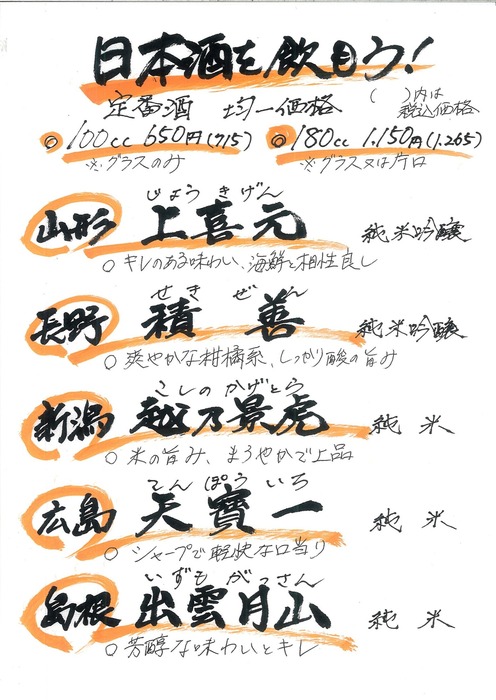 日本酒を飲もう!
定番酒 均一価格 ( )内は税込価格
◎100cc 650円(715) ◎180cc 1,150円(1,265)
※グラスのみ ※グラス又は片口
じょうきげん
山形 上喜元 純米吟醸
○キレのある味わい、海鮮と相性良し
せきぜん
長野 積善 純米吟醸
○爽やかな柑橘系、しっかり酸の旨み
こしのかげとら
新潟 越乃景虎 純米
○米の旨み、まろやかで上品
てんぽういち
広島 天寶一 純米
○シャープで軽快な口当り
いずもがっさん
島根 出雲月山 純米
○芳醇な味わいとキレ